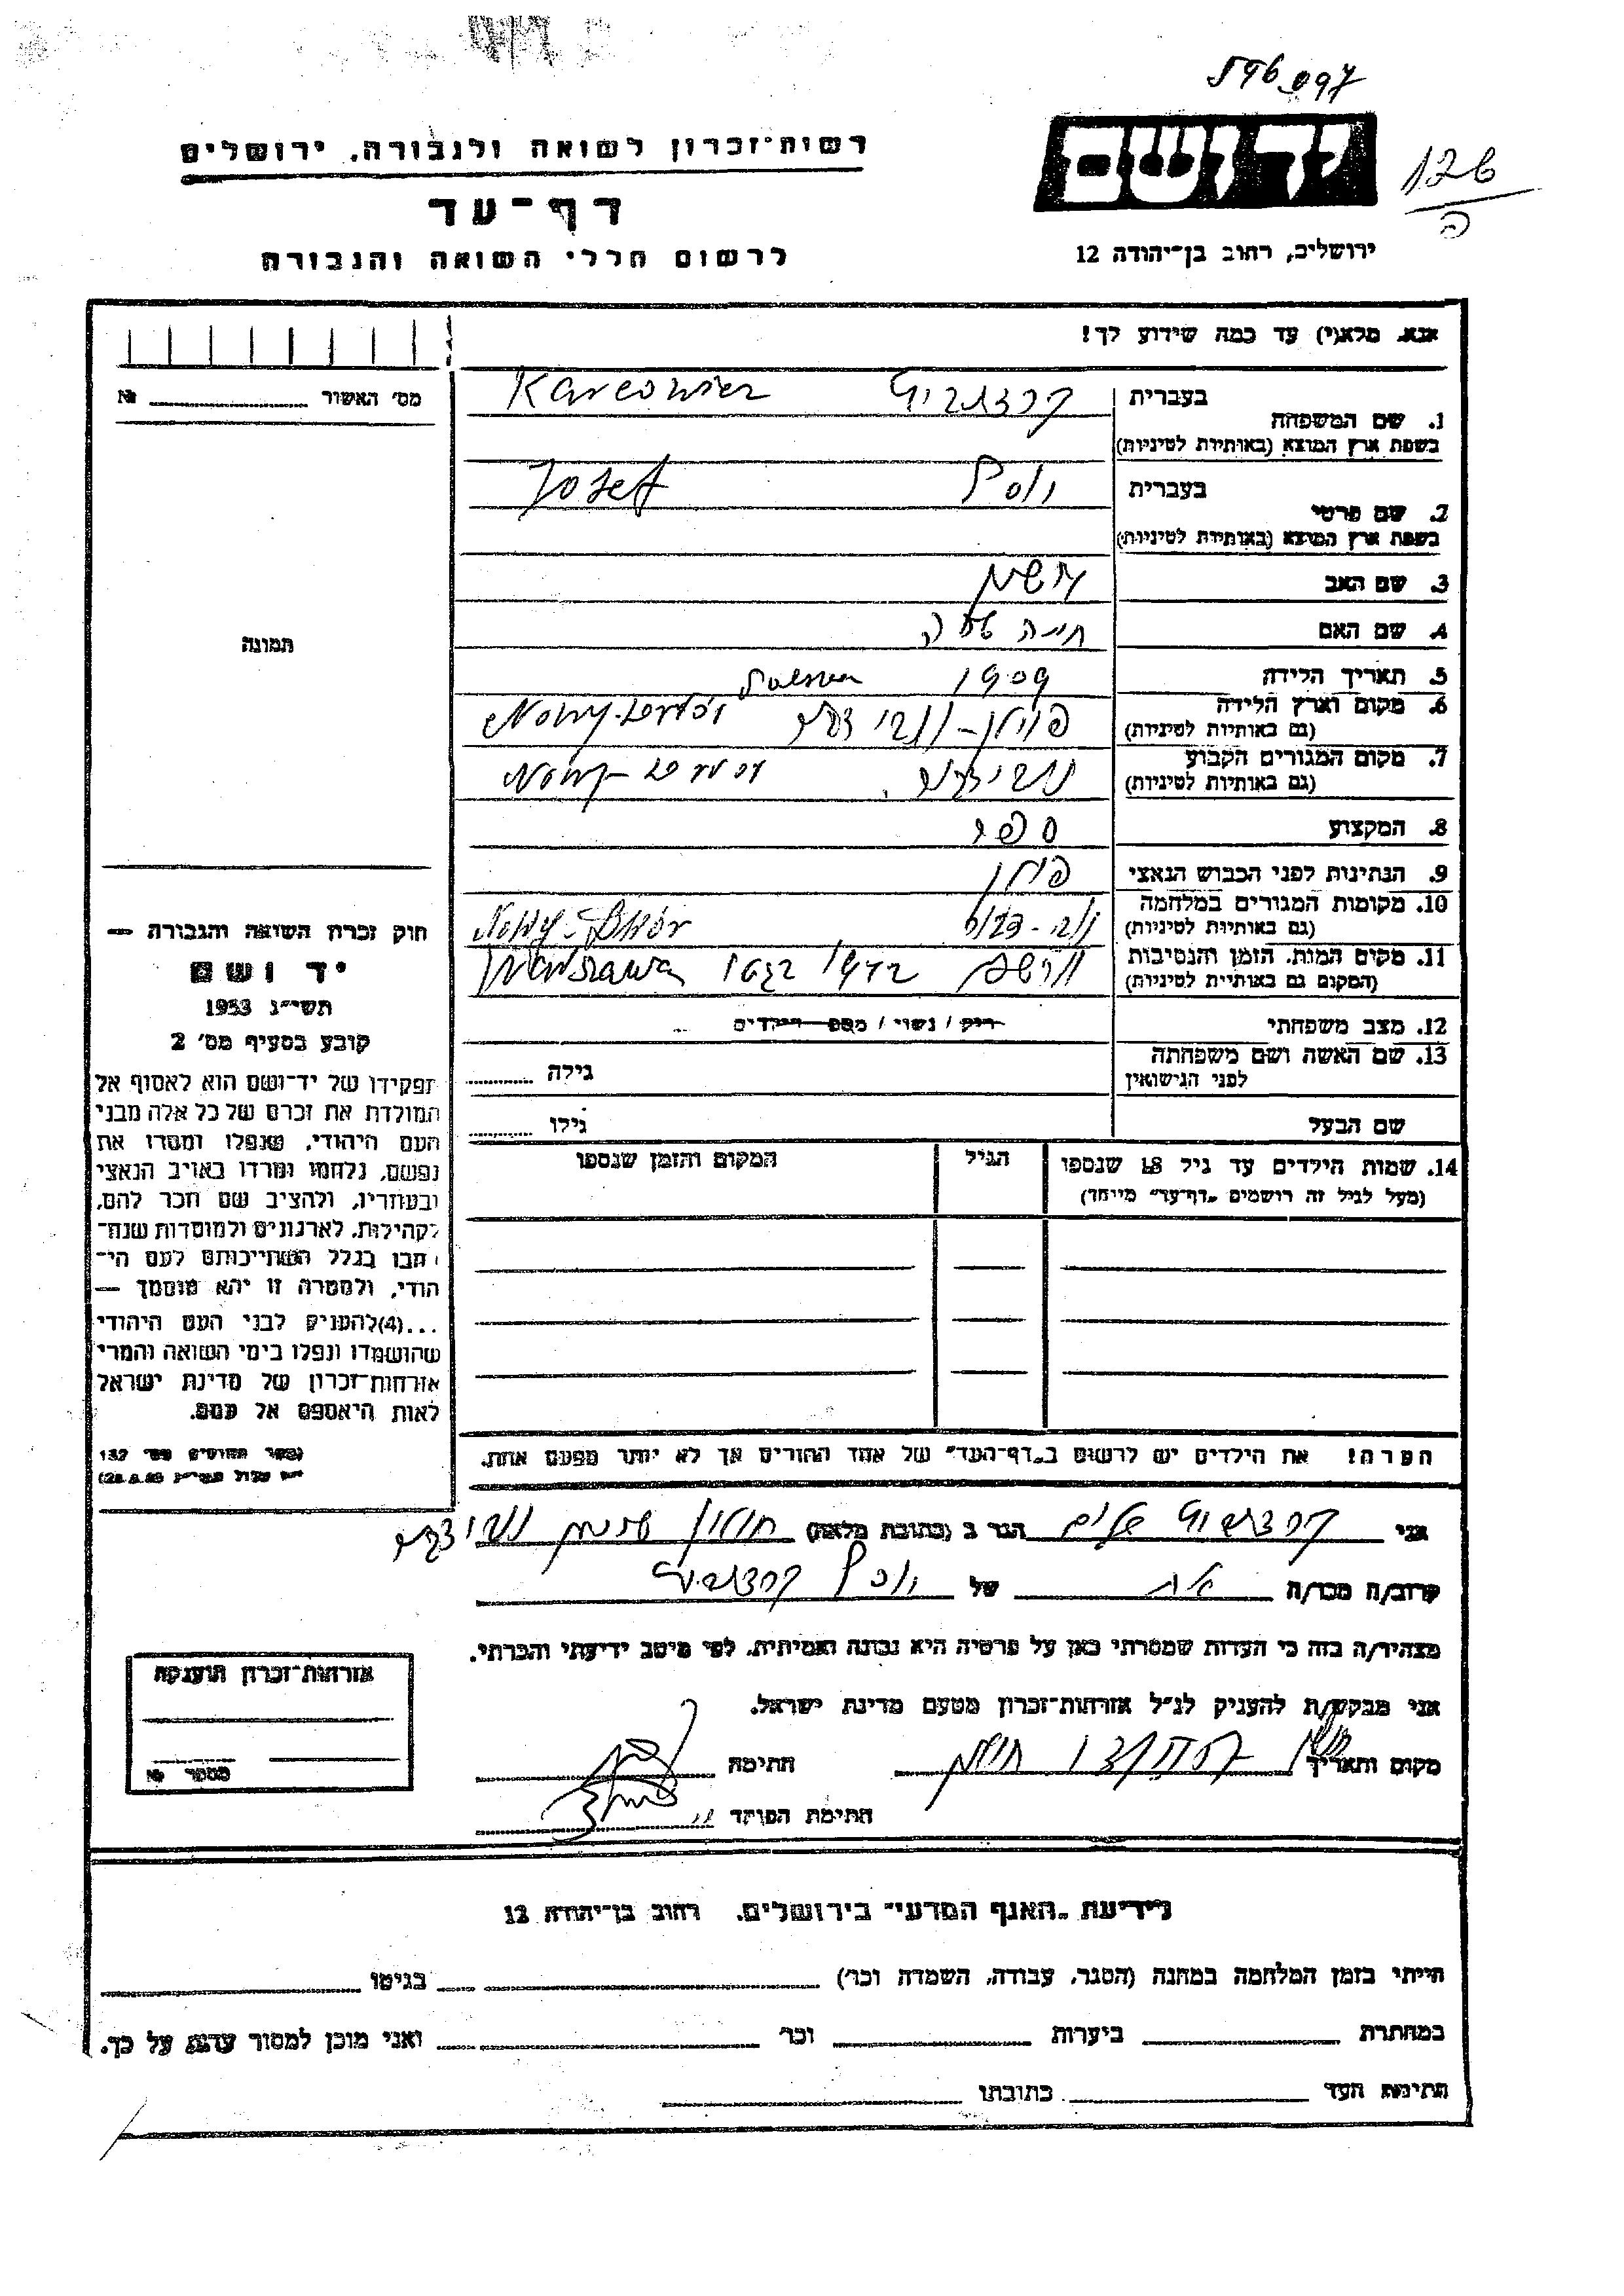 596097
רשות-זכרון לשואה ולגבורה, ירושלים
יד ושם
126
ה
דף-עד
לרשום חללי השואה והגבורה
ירושלים, רחוב בן-יהודה 12
אנא, מלא(י) עד כמה שידוע לך!
מס' האשור № ........
תמונה
חוק זכרון השואה והגבורה —
יד ושם
תשי״ג 1953
קובע בסעיף מס׳ 2
תפקידו של יד-ושם הוא לאסוף אל
המולדת את זכרם של כל אלה מבני
העם היהודי, שנפלו ומסרו את
נפשם, נלחמו ומרדו באויב הנאצי
ובעוזריו, ולהציב שם וזכר להם,
לקהילות, לארגונים ולמוסדות שנח-
רבו בגלל השתייכותם לעם הי-
הודי, ולמטרה זו יהא מוסמך —
...(4)להעניק לבני העם היהודי
שהושמדו ונפלו בימי השואה והמרי
אזרחות-זכרון של מדינת ישראל
לאות היאספם אל עמם.
1. שם המשפחה בעברית קרצוביץ Karcowicz
בשפת ארץ המוצא (באותיות לטיניות)
2. שם פרטי בעברית יוסף Josef
בשפת ארץ המוצא (באותיות לטיניות)
3. שם האב
4. שם האם חיה
5. תאריך הלידה 1909
6. מקום וארץ הלידה פוילן - נובי דבור Nowy-Dwor
(גם באותיות לטיניות)
7. מקום המגורים הקבוע נובי דבור Nowy-Dwor
(גם באותיות לטיניות)
8. המקצוע ספר
9. הנתינות לפני הכבוש הנאצי פולין
10. מקומות המגורים במלחמה Nowy-Dwór
(גם באותיות לטיניות)
11. מקום המות, הזמן והנסיבות ורשה 1942 בגטו Warszawa
(המקום גם באותיות לטיניות)
12. מצב משפחתי רווק / נשוי / מספר הילדים ..
13. שם האשה ושם משפחתה גילה ........
לפני הנישואין
שם הבעל גילו ........
14. שמות הילדים עד גיל 18 שנספו הגיל המקום והזמן שנספו
(מעל לגיל זה רושמים „דף-עד״ מיוחד)
הערה! את הילדים יש לרשום ב„דף-העד״ של אחד ההורים אך לא יותר מפעם אחת.
אני קרצוביץ שלום הגר ב (כתובת מלאה) חולון
קרוב/ה מכר/ה אח של יוסף קרצוביץ
מצהיר/ה בזה כי העדות שמסרתי כאן על פרטיה היא נכונה ואמיתית, לפי מיטב ידיעתי והכרתי.
אני מבקש/ת להעניק לנ״ל אזרחות-זכרון מטעם מדינת ישראל.
מקום ותאריך חולון חתימה
חתימת הפוקד
אזרחות-זכרון הוענקה
מספר №
לידיעת „האגף המדעי״ בירושלים, רחוב בן-יהודה 12
הייתי בזמן המלחמה במחנה (הסגר, עבודה, השמדה וכר׳) בגיטו
במחתרת ביערות וכר׳ ואני מוכן למסור עדות על כך.
חתימת העד כתובתו